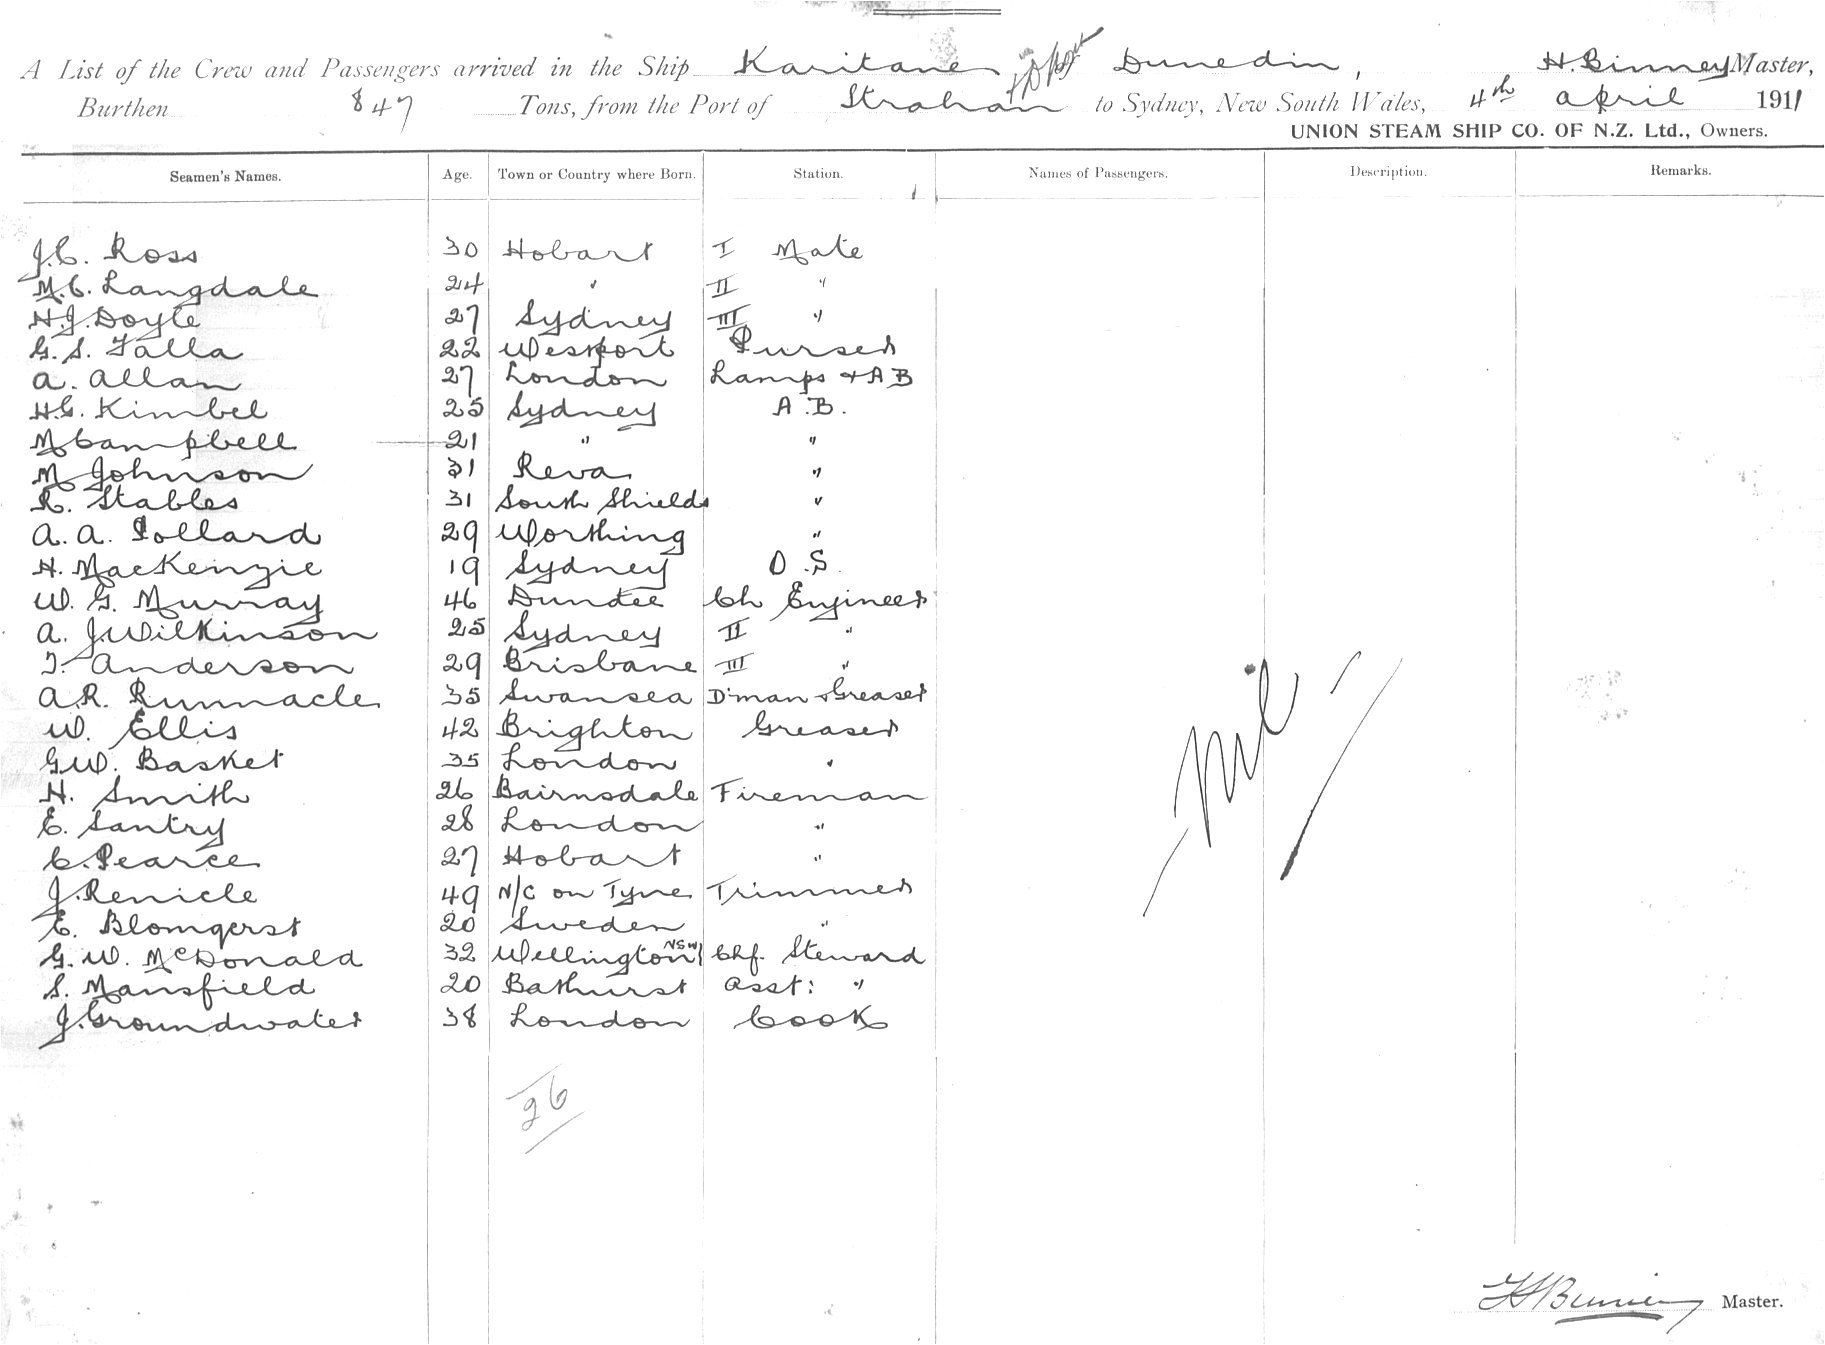 A List of the Crew and Passengers arrived in the Ship Karitane of Dunedin, H. Binney Master,
Burthen 847 Tons, from the Port of Strahan to Sydney, New South Wales, 4th April 1911
UNION STEAM SHIP CO. OF N.Z. Ltd., Owners.
Seamen's Names. Age. Town or Country where Born. Station. Names of Passengers. Description. Remarks.
J.C. Ross 30 Hobart I Mate
M.C. Langdale 24 " II "
H.J. Doyle 27 Sydney III "
G. S. Falla 22 Westport Purser
A. Allan 27 London Lamps & AB
H.G. Kimbel 25 Sydney A.B.
M Campbell 21 " "
M Johnson 31 Reva "
R. Stables 31 South Shields "
A. A. Pollard 29 Worthing "
H. MacKenzie 19 Sydney O.S.
W. G. Murray 46 Dundee Ch Engineer
A. J. Wilkinson 25 Sydney II "
T. Anderson 29 Brisbane III "
A.R. Runnacle 35 Swansea D'man & Greaser
W. Ellis 42 Brighton Greaser
G.W. Basket 35 London "
H. Smith 26 Bairnsdale Fireman
E. Santry 28 London "
C. Pearce 27 Hobart "
J. Renicle 49 N/C on Tyne Trimmer
E. Blomqerst 20 Sweden "
G. W. McDonald 32 Wellington NSW Chf. Steward
S. Mansfield 20 Bathurst Asst: "
J. Groundwater 38 London Cook
Nil
26
H Binney Master.